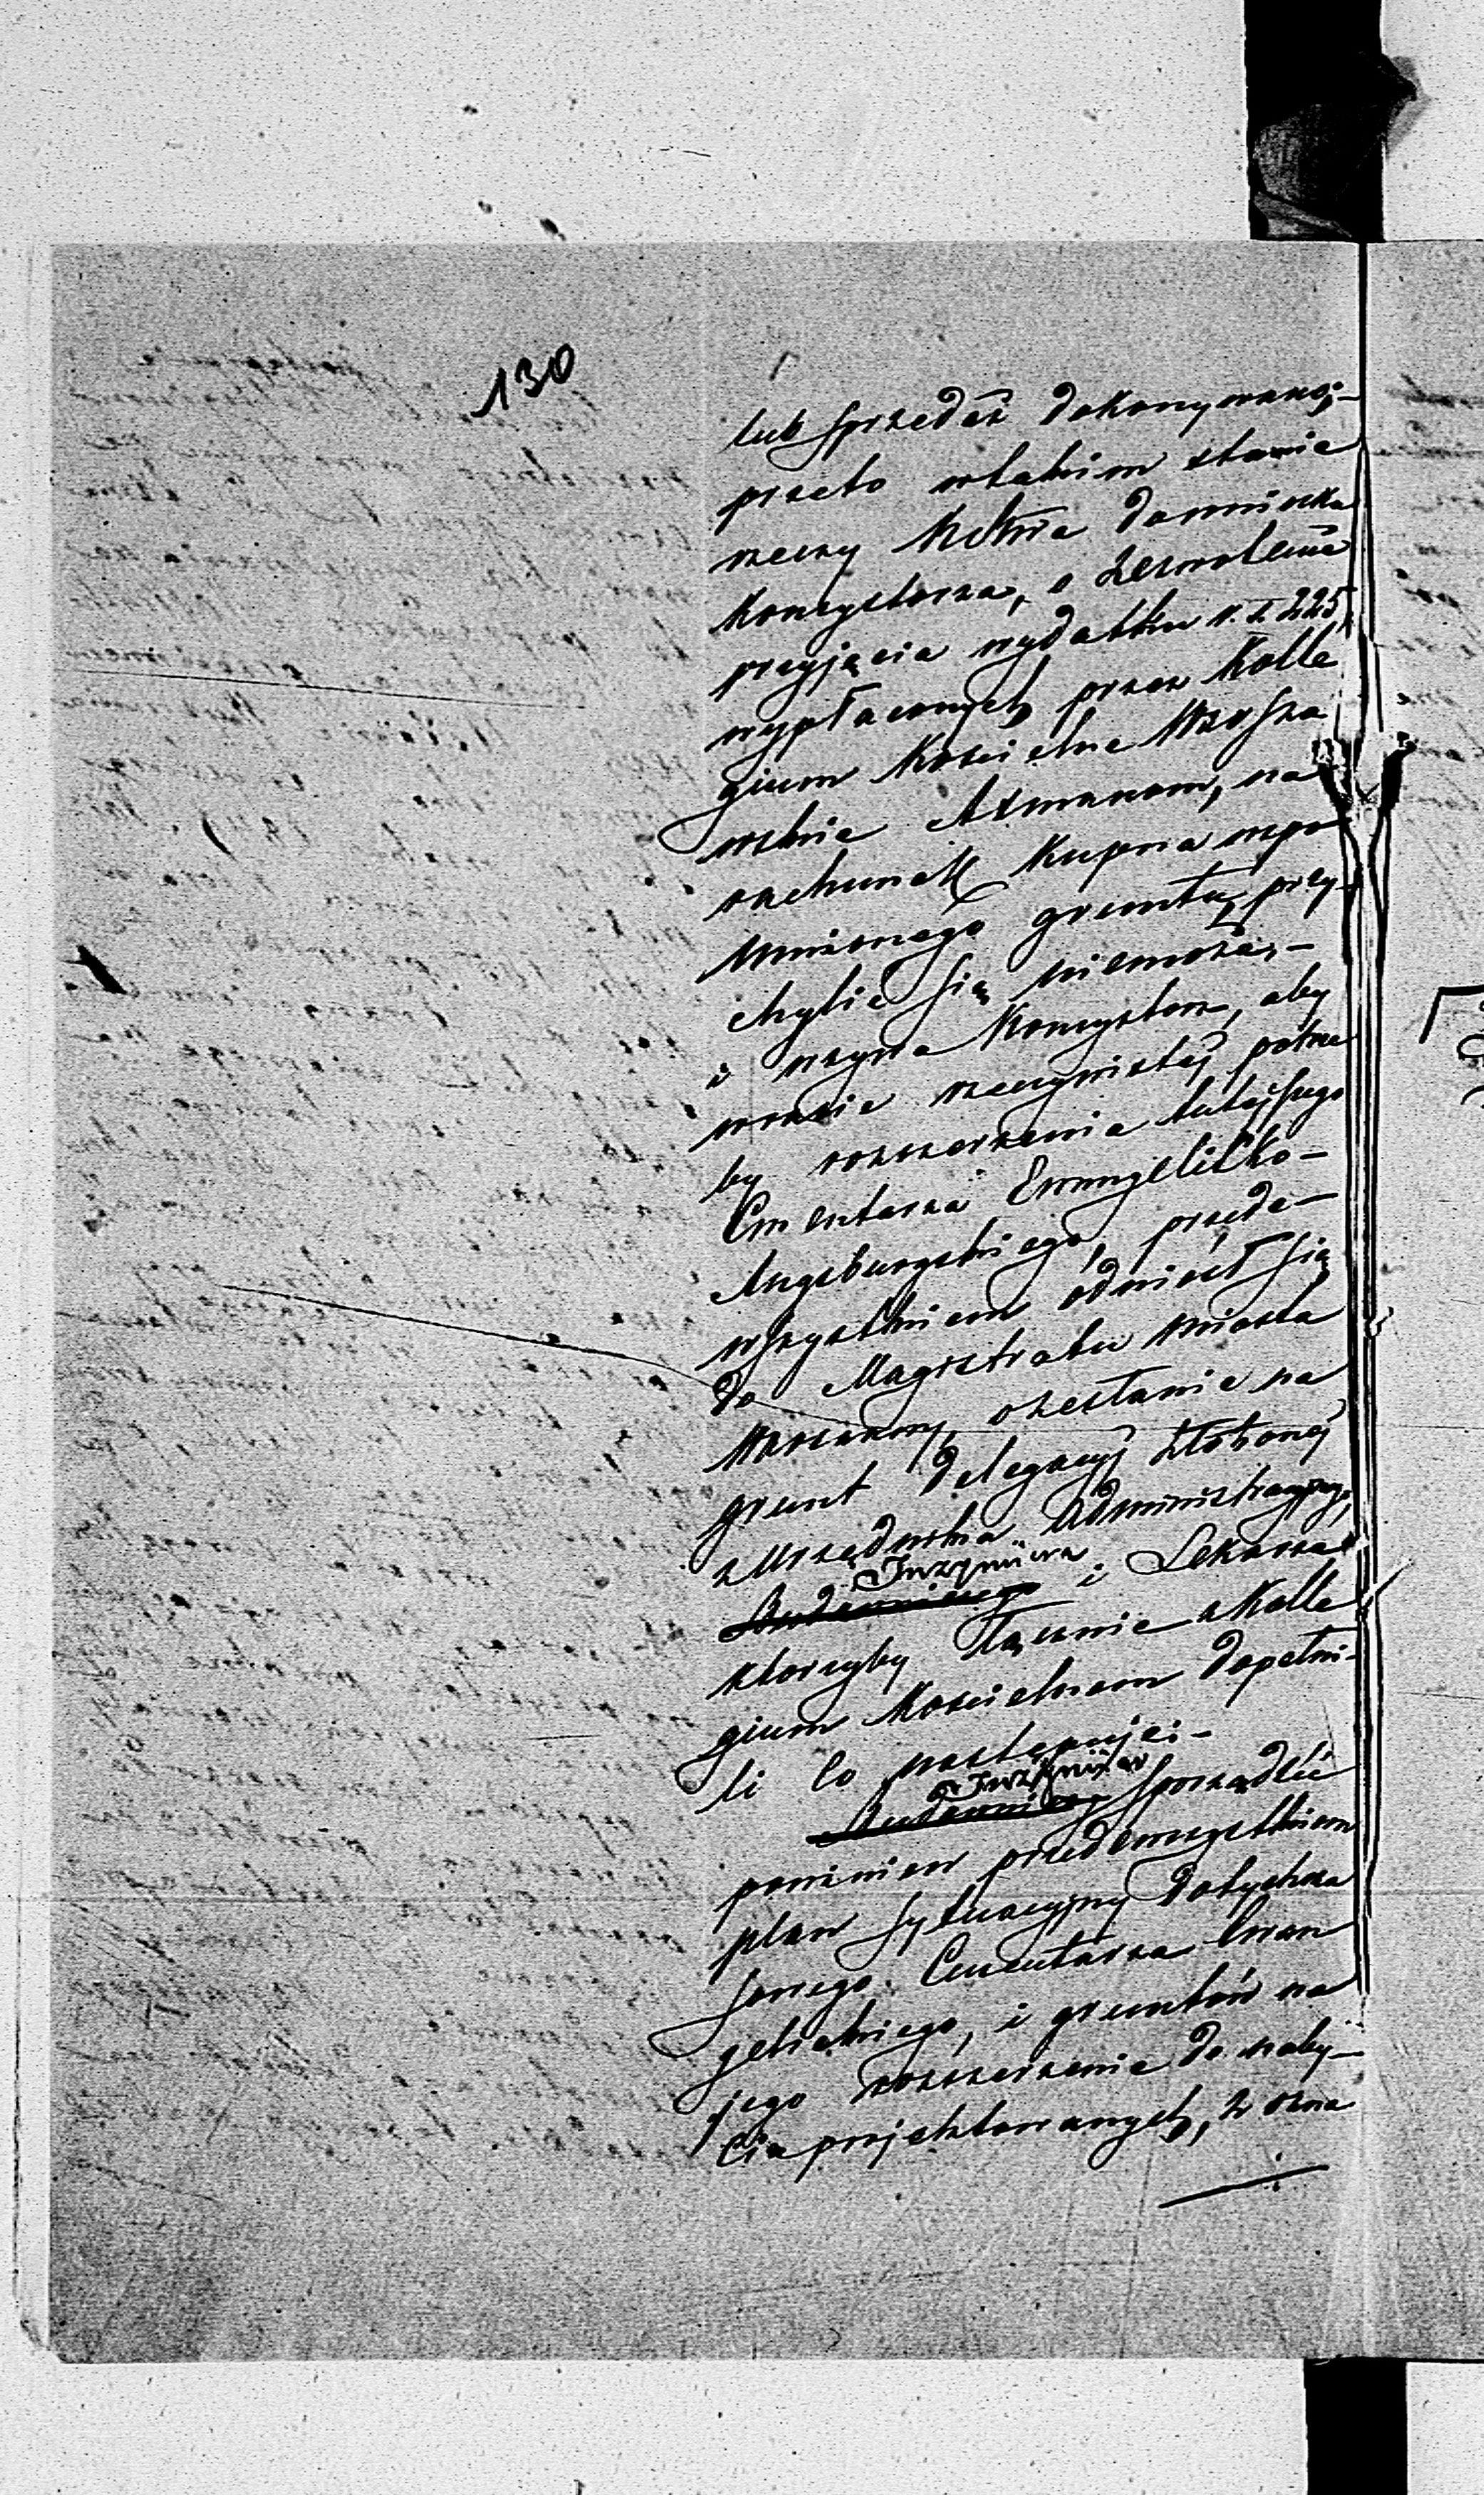 130
lub sprzedaż dokonywaną,-
przeto wtakim stanie
rzeczy Kommissya
Konsystorza, o zezwolenie
przyjęcia wydatku r.s. 225,
wypłaconych przez Kolle
gium Kościelne Warsza
wskie Axmanom, na
rachunek kupna wspo
mnionego gruntu, przy-
chylić się niemoże,-
i wzywa Konsystorz, aby
wrazie rzeczywistej potrze
by rozszerzenia tutejszego
Cmentarza Ewangelicko-
Augsburgskiego, przede-
wszystkiem odniósł się
do Magistratu miasta
Warszawy, o zesłanie na
grunt delegacyj złożonej
z Urzędnika Administracyjnego,
Budowniczego Inżyniera i Lekarza
którzyby łącznie z Kolle
gium Kościelnem dopełni-
li co następuje:-
Budowniczy Inżynier sporządzić
powinien przedewszystkiem
plan sytuacyjny dotychcza
sowego Cmentarza Ewan
gelickiego, i gruntów na
jego rozszerzenie do naby-
cia projektowanych, z ozna